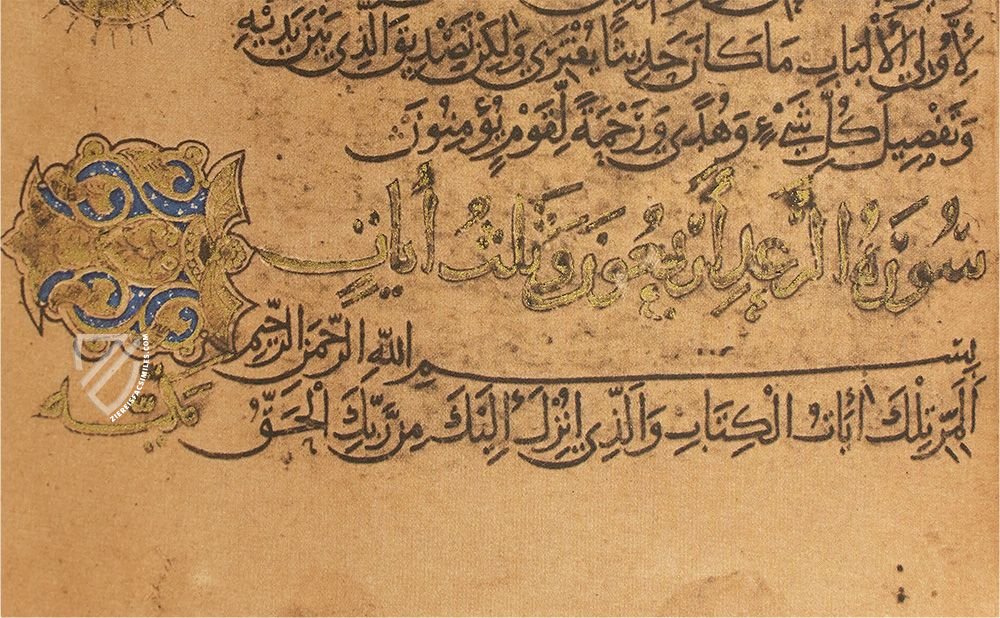 لِأُولِي الْأَلْبَابِ مَا كَانَ حَدِيثًا يُفْتَرَى وَلَكِنْ تَصْدِيقَ الَّذِي بَيْنَ يَدَيْهِ
وَتَفْصِيلَ كُلِّ شَيْءٍ وَهُدًى وَرَحْمَةً لِّقَوْمٍ يُؤْمِنُونَ
سُورَةُ الرَّعْدِ أَرْبَعُونَ وَثَلَثُ أَيَاتٍ
بِسْمِ اللَّهِ الرَّحْمَنِ الرَّحِيمِ
الٓمر تِلْكَ أَيَاتُ الْكِتَابِ وَالَّذِي أُنْزِلَ إِلَيْكَ مِن رَّبِّكَ الْحَقُّ
ZIEREISFACSIMILES.COM